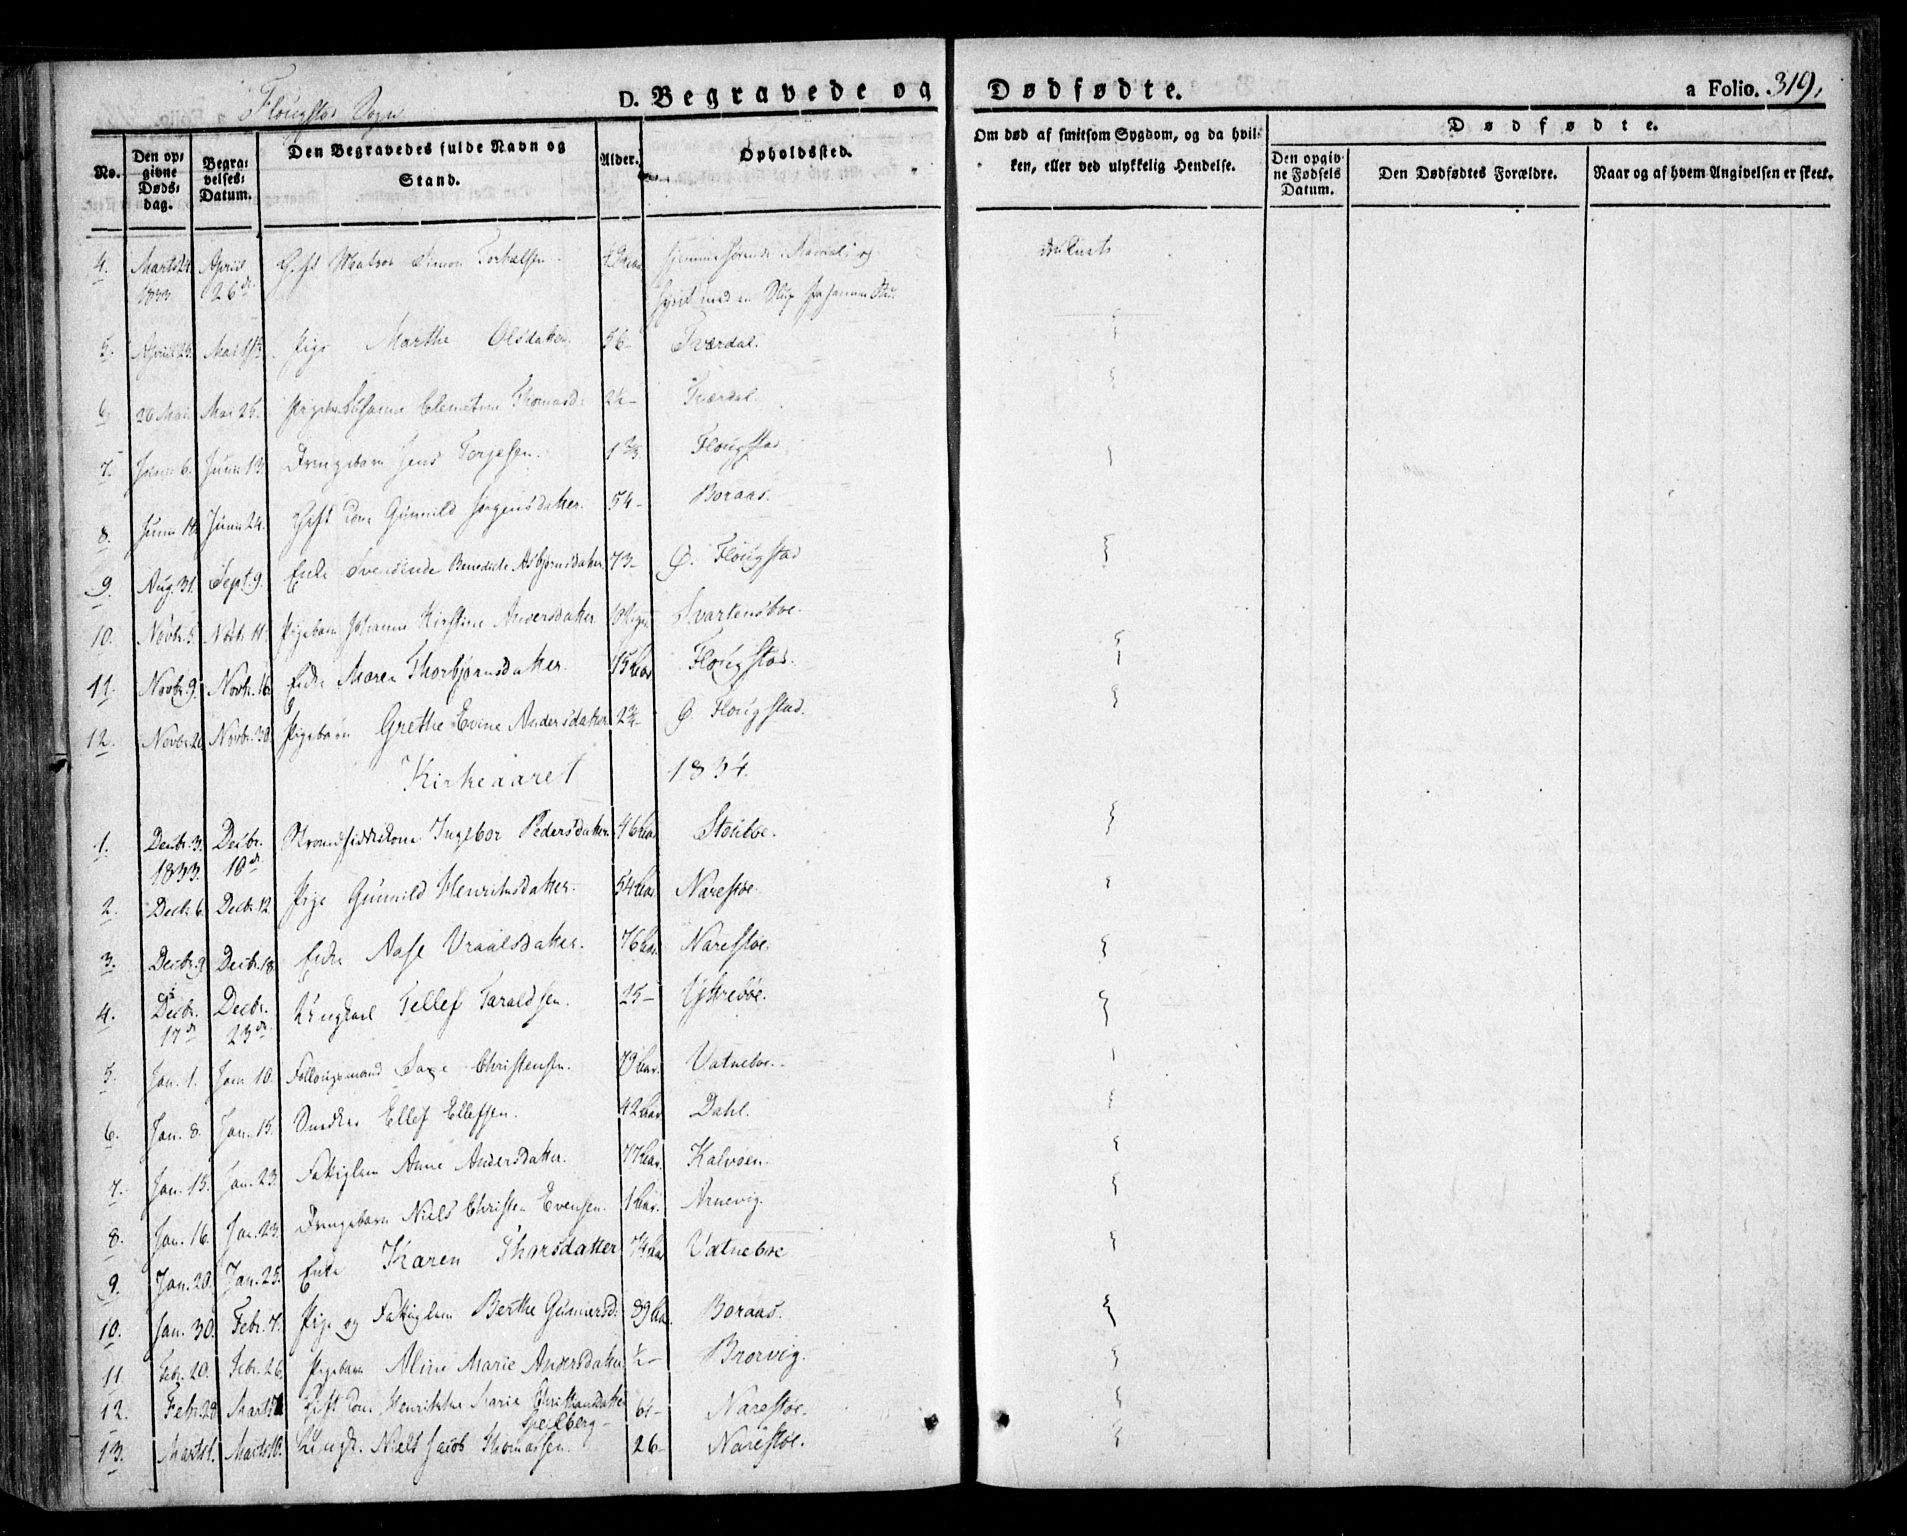 Flougstad Sogn
D. Begravede og Dødfødte.
a Folio. 319.
No.
Den opgivne Dødsdag.
Begravelses-Datum.
Den Begravedes fulde Navn og Stand.
Alder.
Opholdssted.
Om død af smitsom Sygdom, og da hvilken, eller ved ulykkelig Hendelse.
Dødfødte.
Den opgivne Fødsels Datum.
Den Dødfødtes Forældre.
Naar og af hvem Angivelsen er skeet.
4. Marts 24. 1833 April 26de Simon Torkelsen druknet
5. April 25. Mai Pige Marthe Olsdatter. 56- Tværdal.
6. 20 Mai. Mai 25. Pigebarn Susanne Thomasd: Tværdal.
7. Juni 6. Juni 13. Drengebarn Jens Terjesen. Flougstad
8. Juni 14. Juni 24. Gift Kone Gunnild Jørgensdatter. 54- Boraas.
9. Aug. 31. Sept. 9. Enke Benedicte Asbjørnsdatter 73- Ø. Flougstad
10. Novbr. 5. Novbr. 11. Pigebarn Johanne Kirstine Andersdatter Svartensboe.
11. Novbr. 9. Novbr. 16. Enke Maren Thorbjørnsdatter. Flougstad.
12. Novbr. 20 Novbr. 30. Pigebarn Grethe Evine Andersdatter 2¾- Ø. Flougstad.
Kirkeaaret 1834.
1. Decbr. 3. 1833. Decbr. 10de Ingebor Pedersdatter. 46 Aar Stølsboe.
2. Decbr. 6. Decbr. 12. Pige Gunnild Henriksdatter. 54 Aar Narestøe.
3. Decbr. 9. Decbr. 18. Enke Aase Vraalsdatter. 76 Aar. Narestøe.
4. Decbr. 17de Decbr. 23de Ungkarl Tellef Taraldsen. 25- Yttrebøe.
5. Jan. 1. Jan. 10. Føllougsmand Saxe Christensen. 79 Aar. Vatneboe.
6. Jan. 8. Jan. 15. Ellef Ellefsen. 42 Aar. Dahl.
7. Jan. 15. Jan. 23. Fattiglem Anne Andersdatter. 77 Aar. Kalvøen.
8. Jan. 16. Jan. 23. Drengebarn Niels Christen Evensen. 1 Aar. Arnevig.
9. Jan. 20. Jan. 25. Enke Karen Thorsdatter 74 Aar Vatneboe
10. Jan. 30. Febr. 7. Pige og Fattiglem Berthe Gunnersd: 89 Aar. Boraas.
11. Febr. 20. Febr. 26. Pigebarn Aline Marie Andersdatter ½- Brorvig.
12. Febr. 28 Marts Gift Kone Henrikke Marie Christiansdatter
Speilberg- 61- Narestøe.
13. Marts Marts Ungk. Niels Jacob Thomassen. 26- Narestøe.